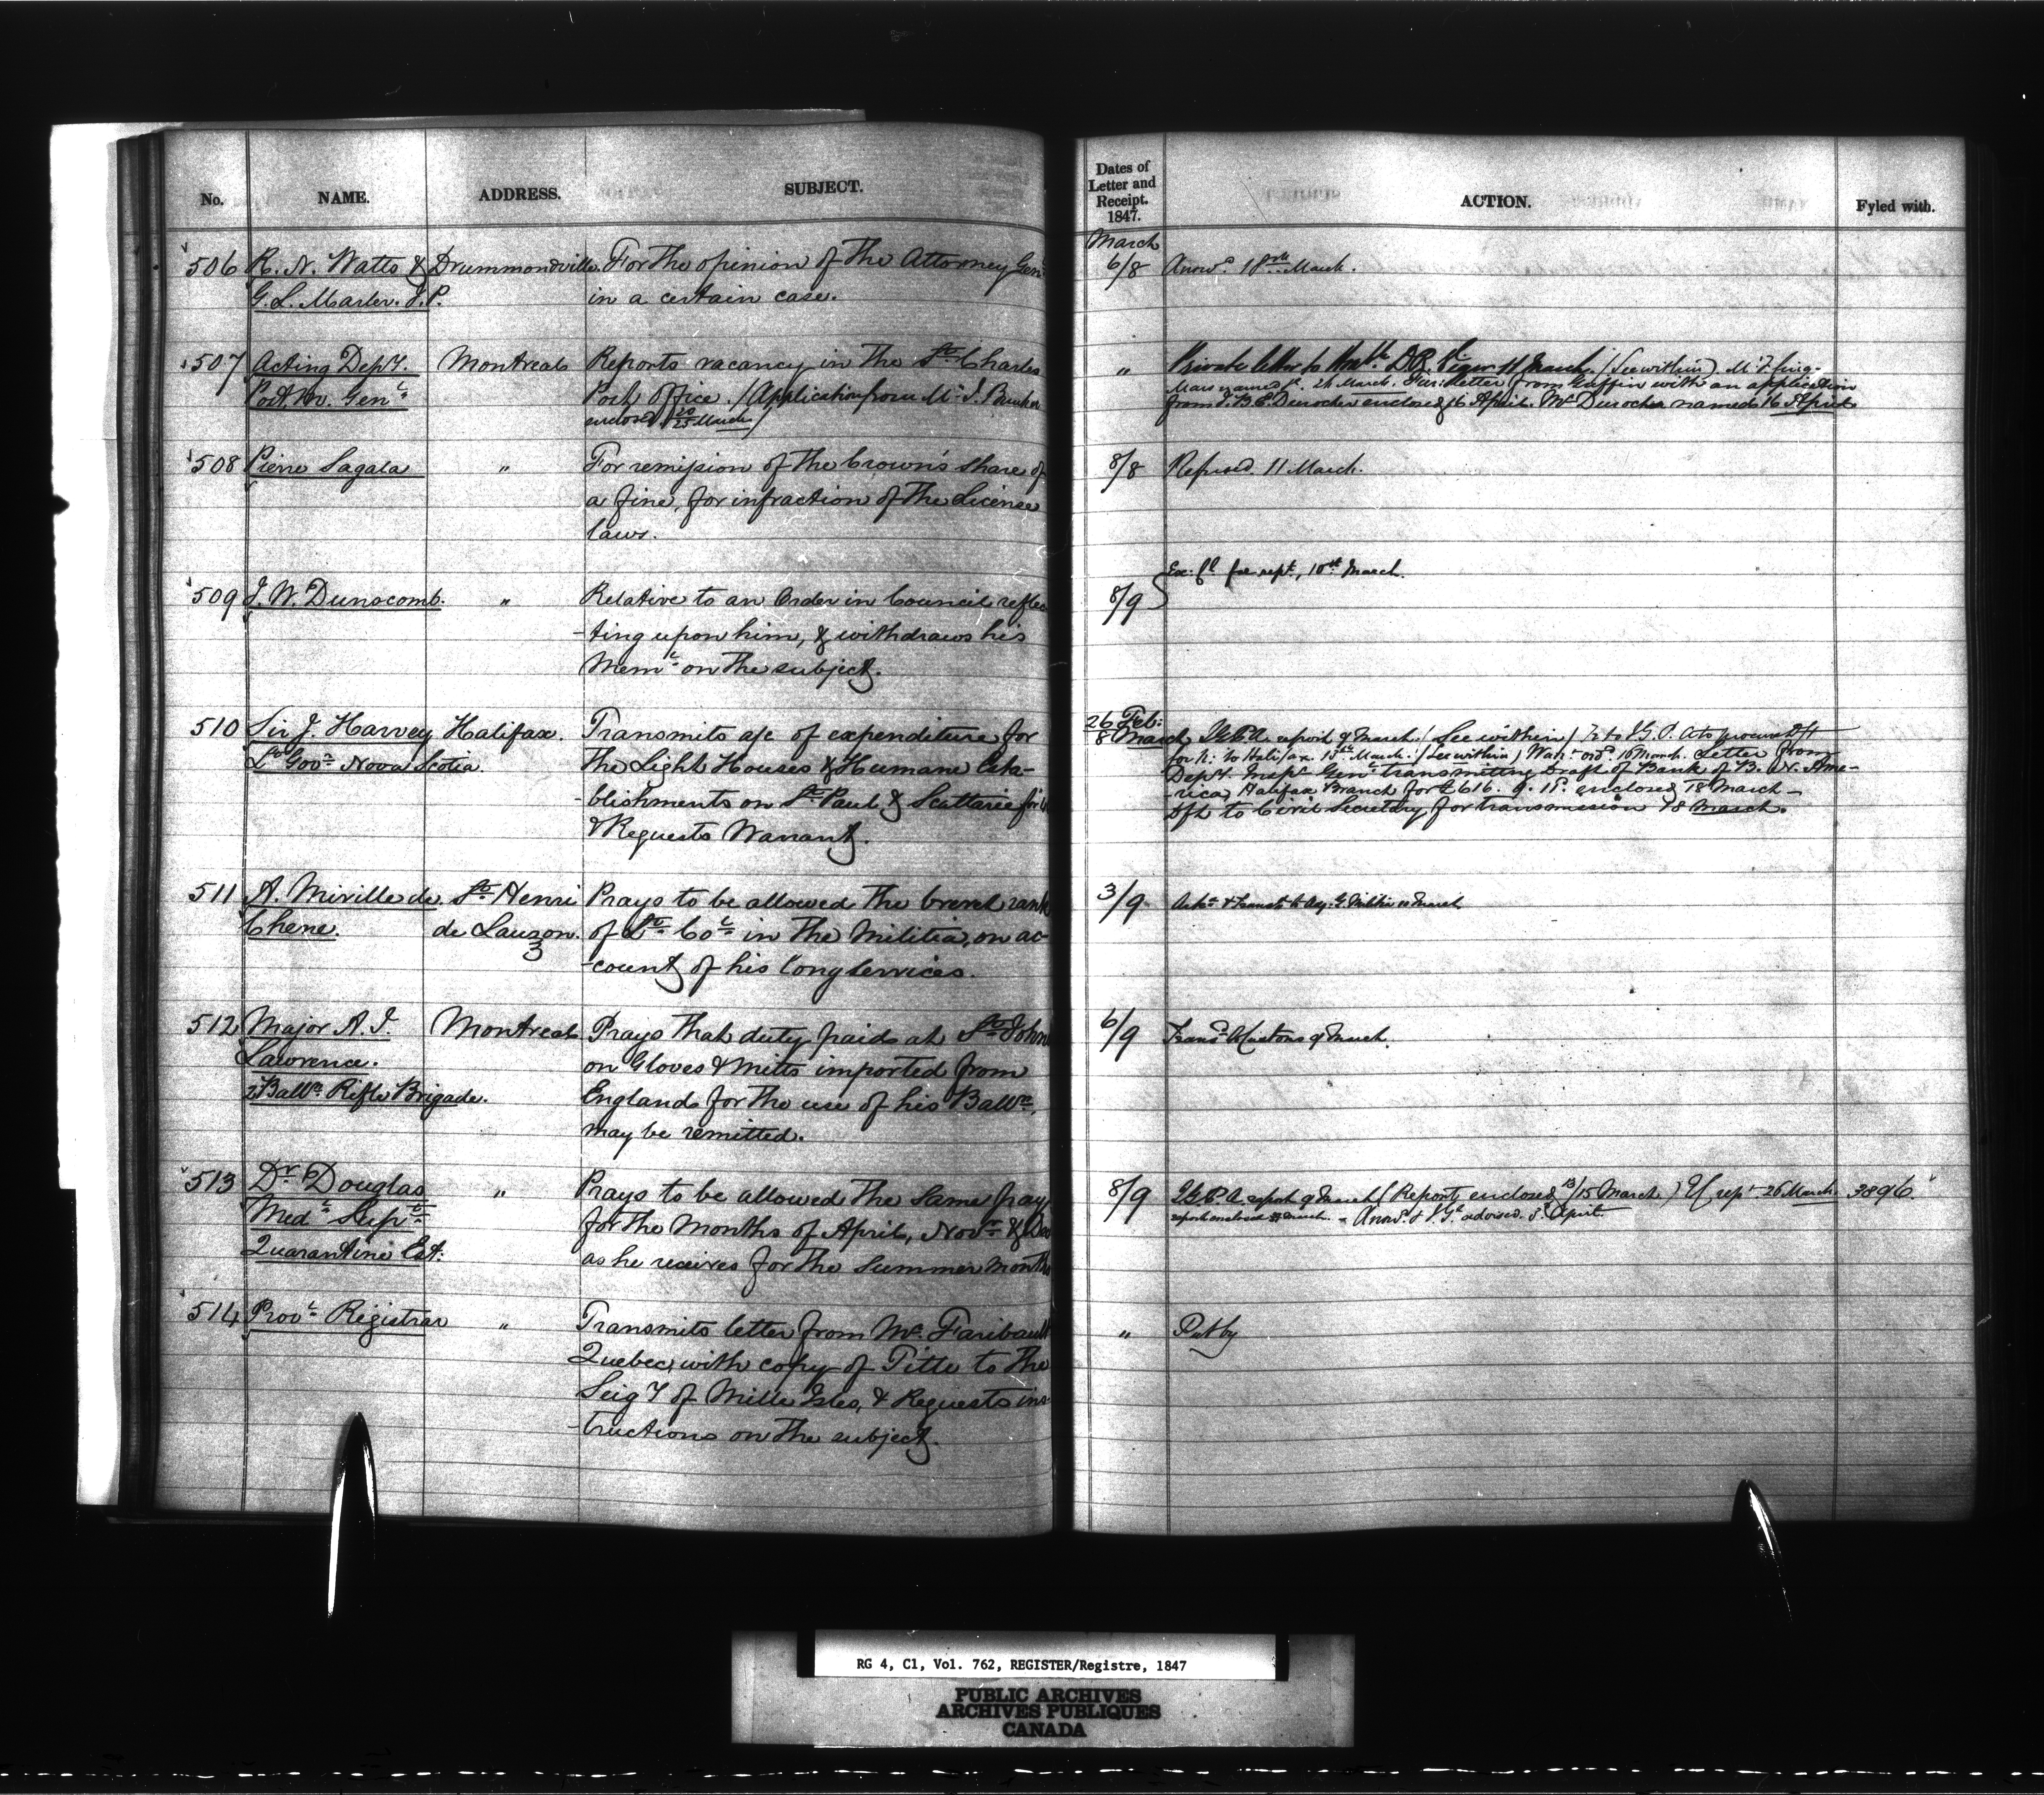 No. NAME. ADDRESS. SUBJECT.
506 R. N. Watts & Drummondville. For the opinion of the Attorney Genl
G. L. Marler. J.P. in a certain case.
507 Acting Depy. Montreal Reports vacancy in the St Charles
Post. Mr. Genl Post Office. (Application from Mr J.
enclosed 20/23 March)
508 Pierre Lagala " For remission of the Crown's share of
a fine, for infraction of the License
laws.
509 J. W. Dunscomb. " Relative to an Order in Council reflec
-ting upon him, & withdraws his
Meml on the subject.
510 Sir J. Harvey Halifax. Transmits a/c of expenditure for
Lt Govr Nova Scotia. the Light Houses & Humane Esta-
-blishments on St Paul & Scattarie for
& Requests Warrant.
511 A. Miville de St Henri Prays to be allowed the brevet rank
Chene. de Lauzon. of Lt Col in the Militia, on ac-
3 -count of his long services.
512 Major A. J. Montreal Prays that duty paid at St Johns
Lawrence. on Gloves & Mitts imported from
2 Balln Rifle Brigade. England for the use of his Balln,
may be remitted.
513 Dr Douglas " Prays to be allowed the same pay
Medl Supt for the Months of April, Novr & Dec
Quarantine Est: as he receives for the Summer Months
514 Provl Registrar " Transmits letter from Mr Faribault
Quebec, with copy of Title to the
Seigy of Mille Isles, & Requests ins-
-tructions on the subject.
Dates of
Letter and
Receipt.
1847.
ACTION. Fyled with.
March
6/8 Answd 18th March.
" Private letter to March. (See within)
24 March. letter from Guffin with an application
from J. B. E. Durocher enclosed 16 April. Mr Durocher named 16 April
8/8 Refused 11 March.
Ex: Cl for rept, 10th March.
8/9
26 Feb:
8 March report 9 March (See within)
to Halifax. March. (See within) Warrt ordd 16 March. Letter from
Depy. Inspr Genl transmitting Draft of Bank of B. N. Ame-
-rica, Halifax Branch for £616. 9. 15. enclosed 18 March -
Dft to Civil Secretary for transmission 18 March.
3/9 Ackd & transd to Adj. G. Militia 11 March
6/9 Transd Customs 9 March.
8/9 report 9 March (Report enclosed 13/15 March) rept 26 March. 3896
report enclosed March. - Answd & advised. 8 April.
" Put by
RG 4, C1, Vol. 762, REGISTER/Registre, 1847
PUBLIC ARCHIVES
ARCHIVES PUBLIQUES
CANADA